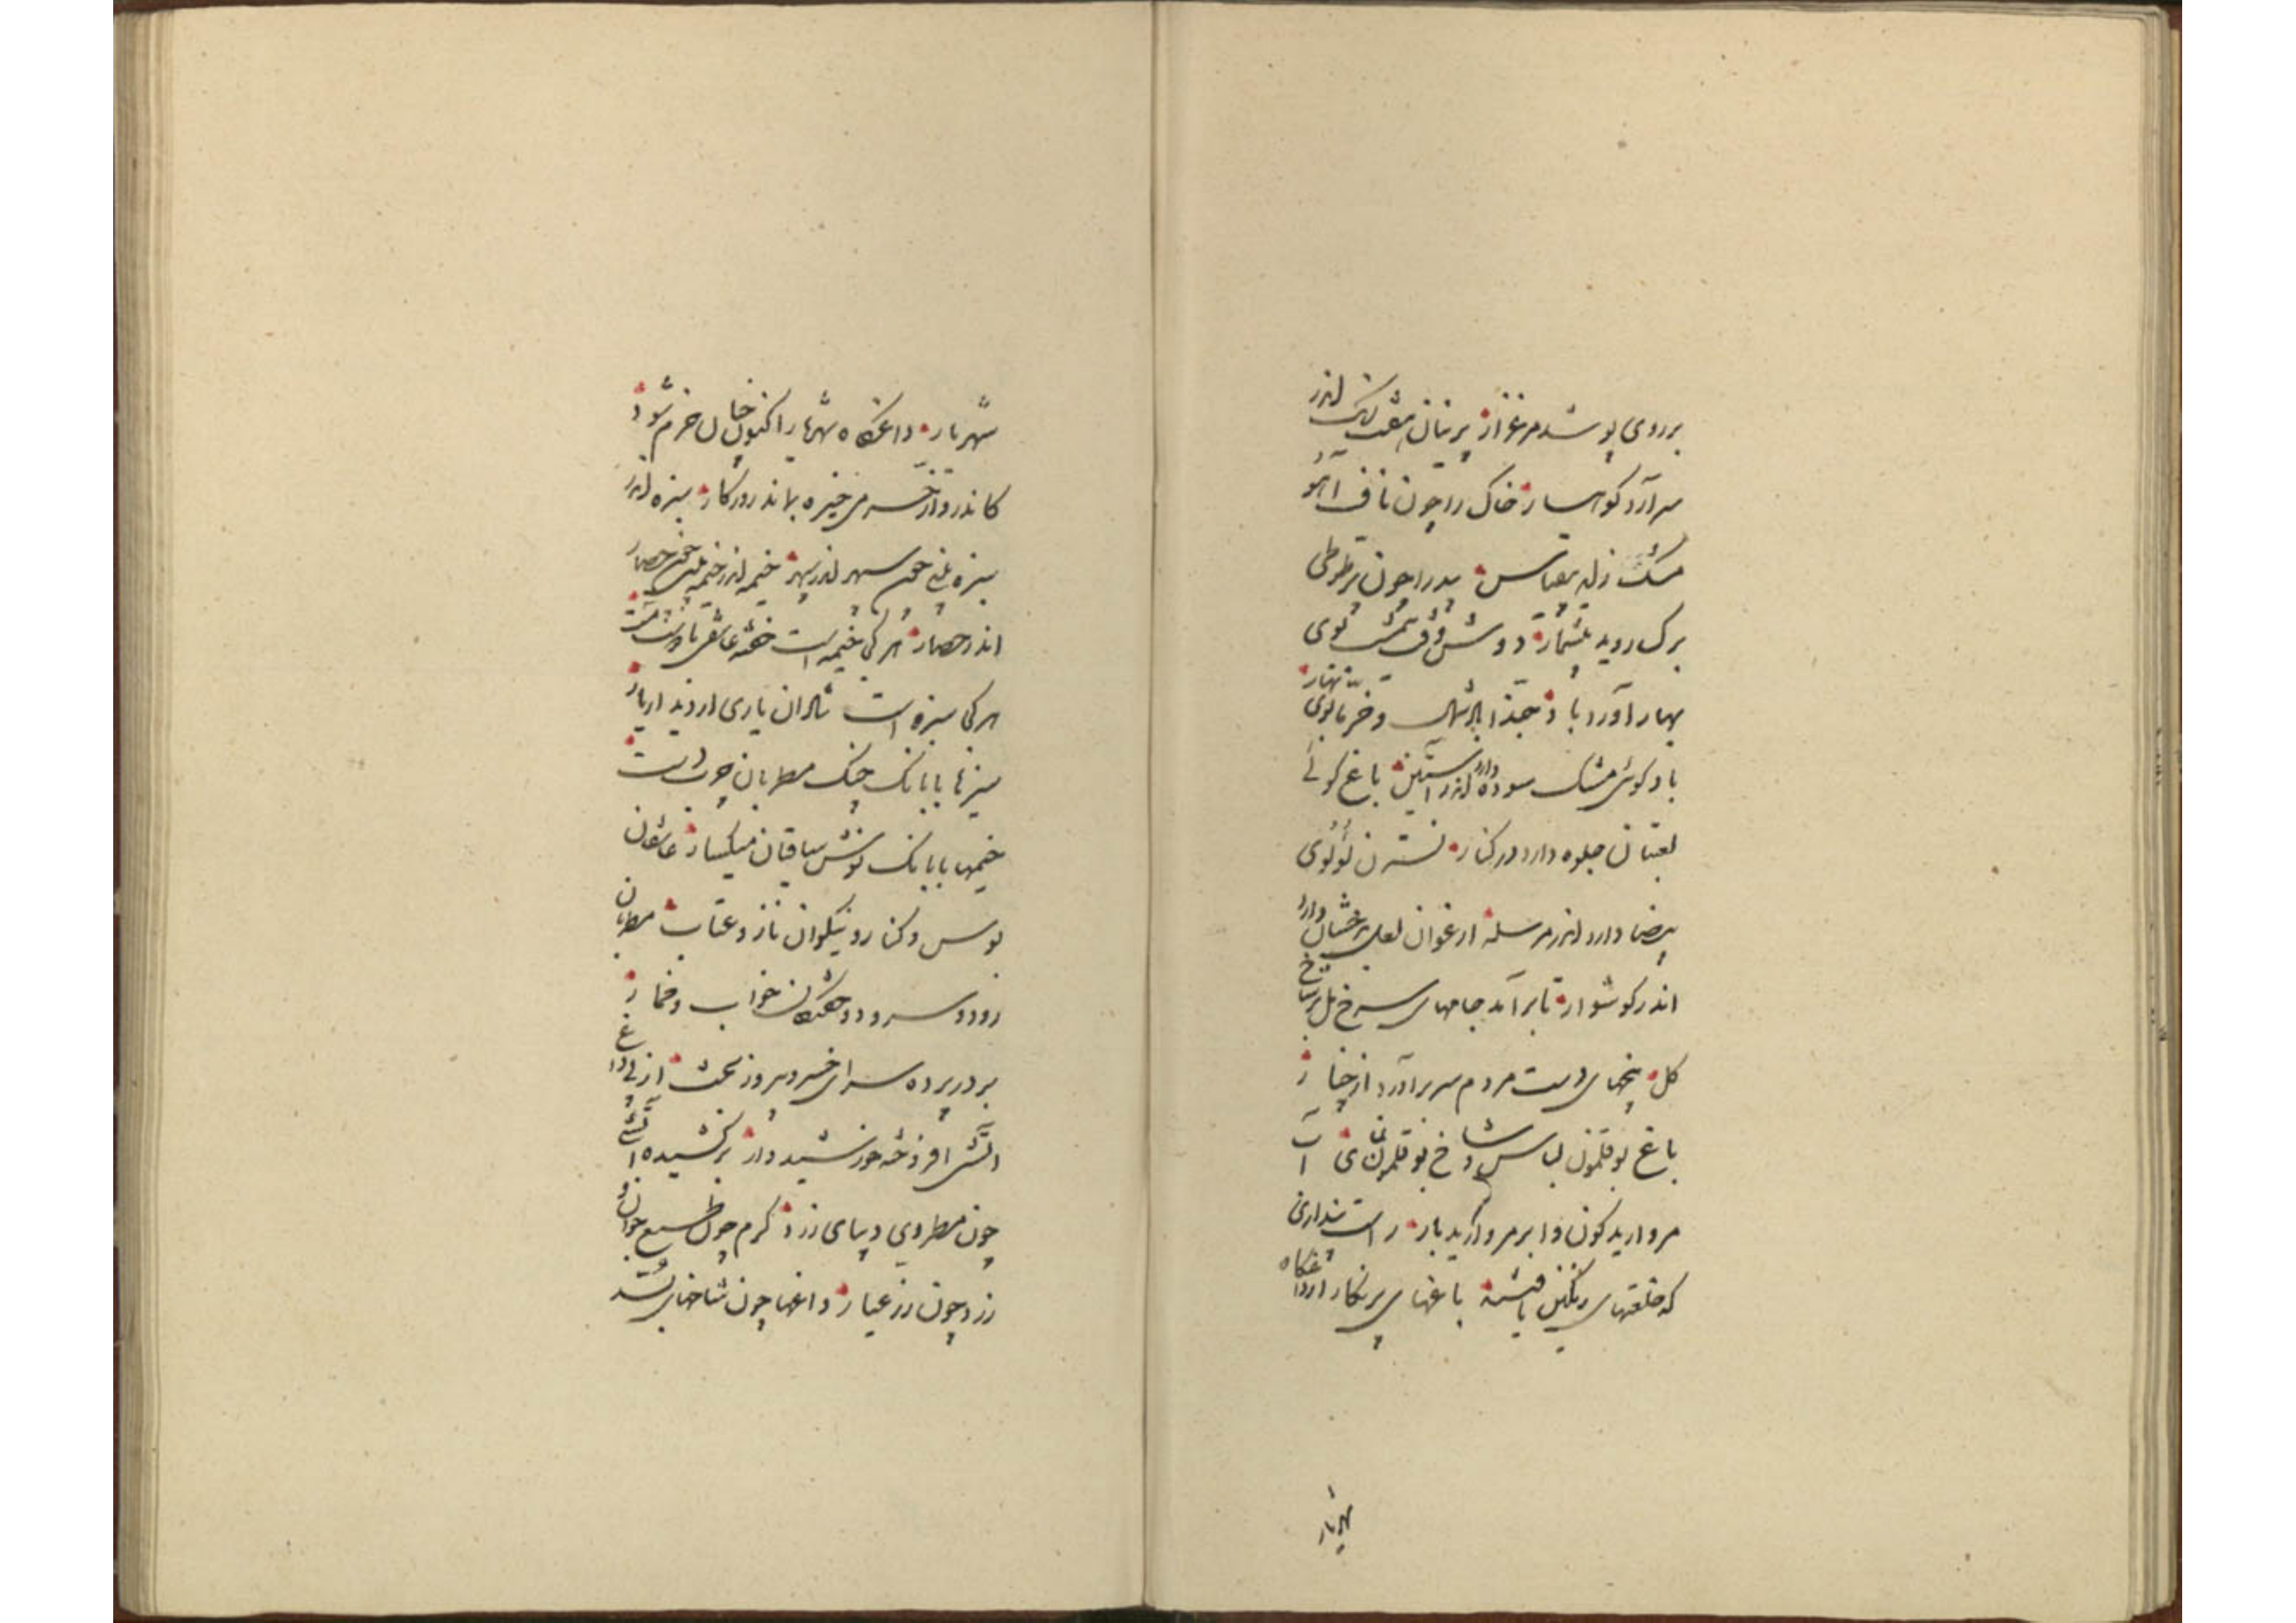 بر روی پوشد مرغزار پرنیان هفت رنک اندر
سر آرد کوهسار خاک را چون ناف آهو
مشک زاید بیقیاس بید را چون پر طوطی
برک روید بیشمار دوش وقت نیمشب بوی
بهار آورد باد حبذا باد شمال و خرما بوی بهار
باد کوئی مشک سوده دارد اندر آستین باغ کوئی
لعبتان جلوه دارد در کنار نسترن لؤلؤی
بیضا دارد اندر مرسله ارغوان لعل بدخشان دارد
اندر کوشوار تا برآمد جامهای سرخ مل بر شاخ
کل پنجهای دست مردم سر برآورد از چنار
باغ بوقلمون لباس و شاخ بوقلمون نمای آب
مروارید کون و ابر مروارید بار راست پنداری
که خلعتهای رنکین یافتند باغهای پرنکار از داغکاه
شهریار
شهریار داغکاه شهریار اکنون چنان خرم شود
کاندرو از خرمی خیره بماند روزکار سبزه اندر
سبزه بینی چون سپهر اندر سپهر خیمه اندر خیمه بینی چون حصار
اندر حصار هر کجا خیمه است خفته عاشقی با دوست مست
هر کجا سبزه است شادان یاری از دیدار یار
سبزها با بانک چنک مطربان چرب دست
خیمها با بانک نوش ساقیان میکسار عاشقان
بوس و کنار و نیکوان ناز و عتاب مطربان
رود و سرود و خفتکان خواب و خمار
بر در پرده سرای خسرو پیروز بخت از پی داغ
آتشی افروخته خورشید وار برکشیده آتشی
چون مطرد دیبای زرد کرم چون طبع جوان و
زرد چون زر عیار داغها چون شاخهای بسد